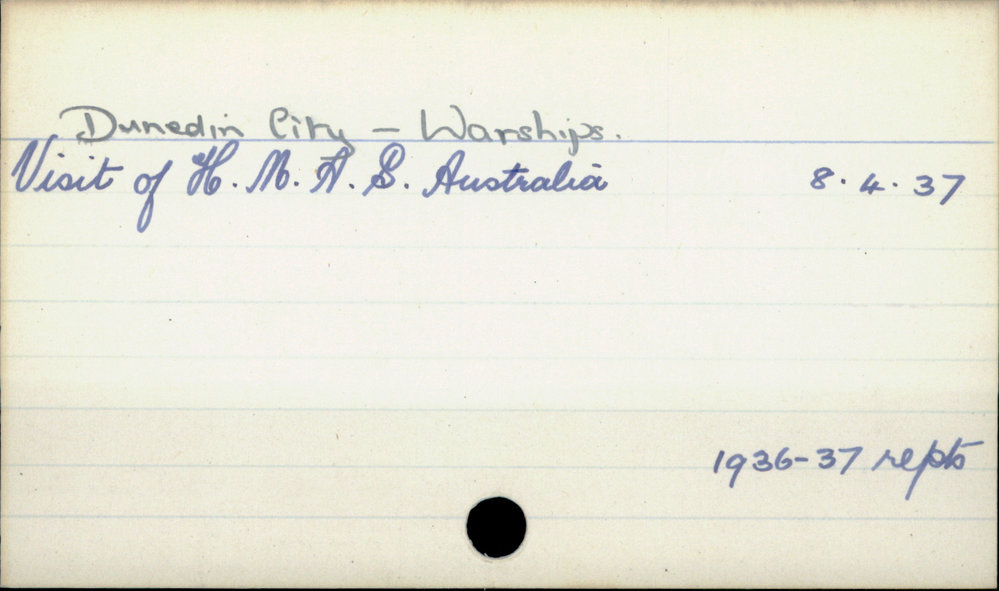 Dunedin City – Warships.
Visit of H. M. A. S. Australia 8. 4. 37
1936-37 repts